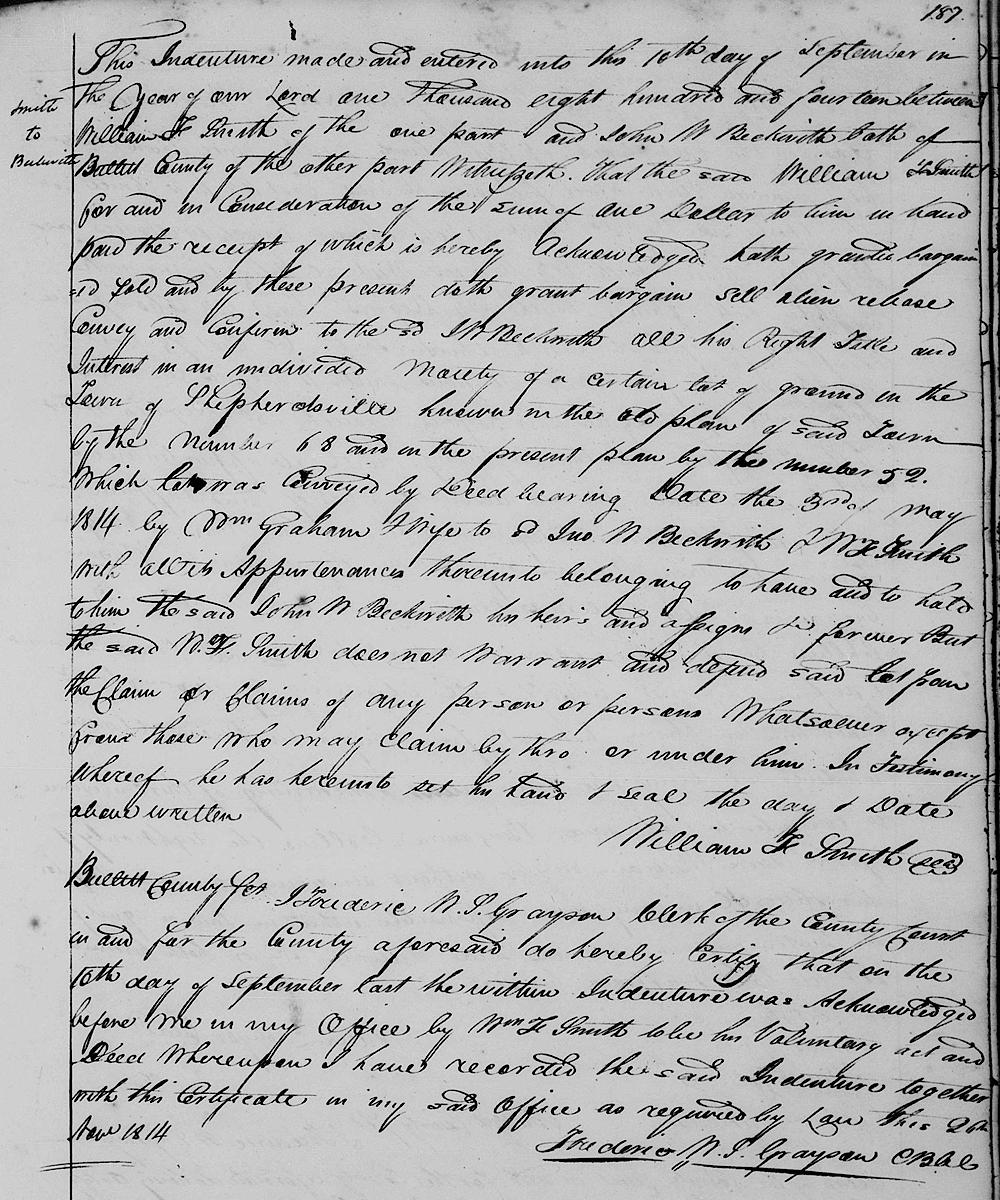 187.
This Indenture made and entered into this 10th day of September in
the Year of our Lord one Thousand eight hundred and fourteen between
Smith
to
Beckwith
William F Smith of the one part and John W Beckwith both of
Bullitt County of the other part Witnesseth. That the said William F Smith
for and in Consideration of the sum of one Dollar to him in hand
paid the receipt of which is hereby Acknowledged hath granted bargain
=ed sold and by these present doth grant bargain sell alien release
Convey and Confirm to the sd J W Beckwith all his Right Title and
Interest in an undivided Moiety of a certain lot of ground in the
Town of Shepherdsville known in the old plan of said Town
by the number 68 and in the present plan by the number 52.
Which lot was Conveyed by Deed bearing Date the 3rd of May
1814 by Wm Graham & Wife to sd Jno W Beckwith & W F Smith
with all its Appurtenances thereunto belonging to have and to hold
to him the said John W Beckwith his heirs and assigns &c forever But
the said W. F. Smith does not Warrant and defend said lot from
the Claim or Claims of any person or persons Whatsoever except
from those who may Claim by thro or under him. In Testimony
whereof he has hereunto set his hand & seal the day & Date
above written
William F Smith Seal
Bullitt County Sct. I Frederic W. S. Grayson Clerk of the County Court
in and for the County aforesaid do hereby Certify that on the
10th day of September last the within Indenture was Acknowledged
before me in my Office by Wm F Smith to be his Voluntary act and
Deed Whereupon I have recorded the said Indenture together
with this Certificate in my said Office as required by Law This 26th
Novr 1814
Frederic W. S. Grayson CBCC